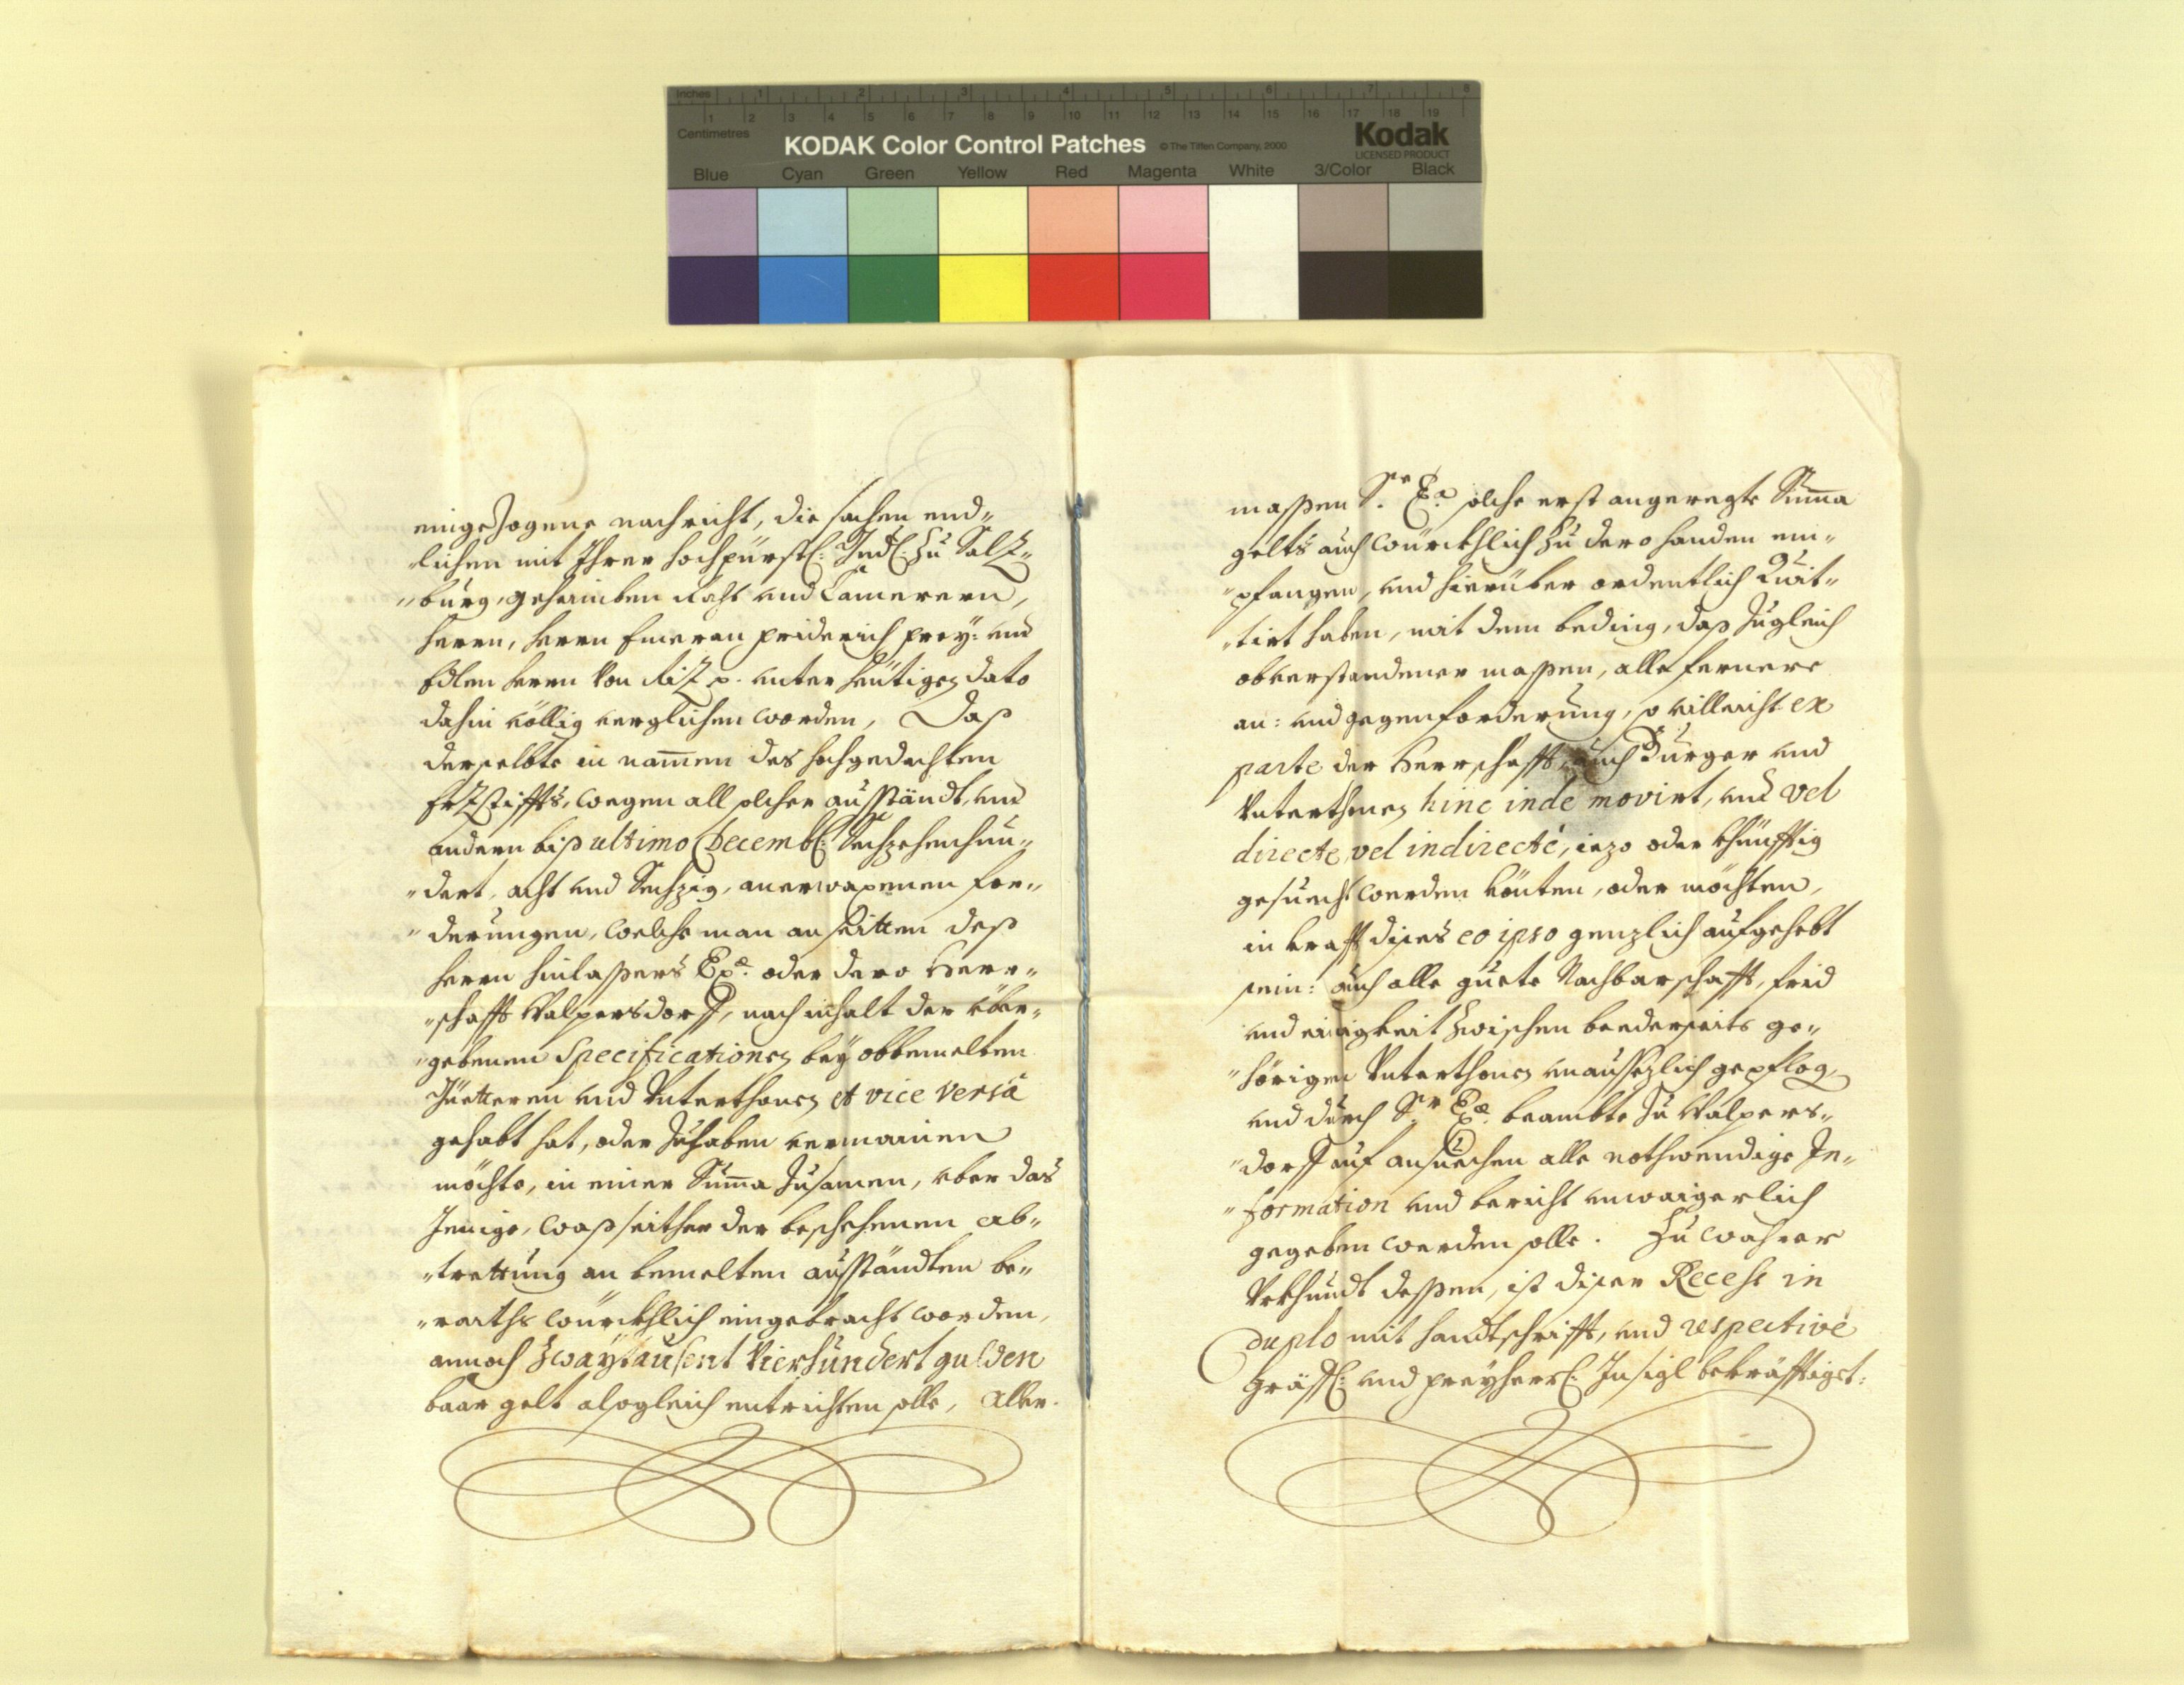 Inches 1 2 3 4 5 6 7 8
Centimetres 1 2 3 4 5 6 7 8 9 10 11 12 13 14 15 16 17 18 19
KODAK Color Control Patches © The Tiffen Company, 2000 Kodak
LICENSED PRODUCT
Blue Cyan Green Yellow Red Magenta White 3/Color Black
eingezogene nachricht, die sachen end„
„lichen mit Ihrer hochfürstl: Gnd: zu Salz„
„burg, gehaimben Rath und Camerern,
Herrn, Herrn Emeran friderich frey: und
Edlen Herrn von Riz p. unter heutigen dato
dahin völlig verglichen worden, Daß
derselbte in namen des hochgedachten
Erzstiffts, wegen all solcher ausständt, und
andern biß ultimo Decemb: Sechzehenhun„
„dert, acht und Sechzig, anerwaxenen for„
„derungen, welche man an seitten deß
Herrn hinlaßers Exc. oder dero Herr„
„schafft Walpersdorff, nach inhalt der über„
„gebenen Specificationen bey obbemelten
Güettern und Unterthonen et vice versa
gehabt hat, oder zuhaben vermainen
möchte, in einer Summa zusamen, über das
Jenige, waß seither der beschehenen ab„
„trettung an bemelten ausständten be„
„raiths würckhlich eingebracht worden,
annoch Zwaytausent Vierhundert gulden
baar gelt alsogleich entrichten solle, aller.
maßen Sr. Exc. solche erst angeregte Summa
gelts auch würckhlich zu dero handen em„
„pfangen, und hierüber ordentlich Quit„
„tirt haben, mit dem beding, daß zugleich
obverstandener maßen, alle fernere
an: und gegenforderung, so villeicht ex
parte der Herrschafft, auch Burger und
Unterthonen hinc inde movirt, und vel
directe, vel indirecté, iezo oder khünfftig
gesuecht werden könten, oder möchten,
in krafft dises eo ipso genzlich aufgehebt
sein: auch alle guete Nachbarschafft, frid
und einigkeit zwischen bederseits ge„
„hörigen Unterthonen unaussezlich gepflogen
und durch Sr. Exc. beambte zu Walpers„
„dorff auf ansuechen alle nothwendige In„
„formation und bericht unwaigerlich
gegeben werden solle. Zu wahrer
Urkhundt dessen, ist diser Recess in
duplo mit handtschrifft, und respectivé
Gräfl: und freyherl: Insigl bekräfftiget: